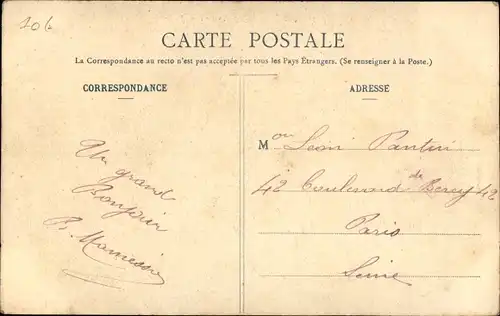 106
CARTE POSTALE
La Correspondance au recto n'est pas acceptée par tous les Pays Étrangers. (Se renseigner à la Poste.)
CORRESPONDANCE
Un grand
Bonjour
ADRESSÉ
M Pantin
42 Boulevard de Bercy 42
Paris
Seine